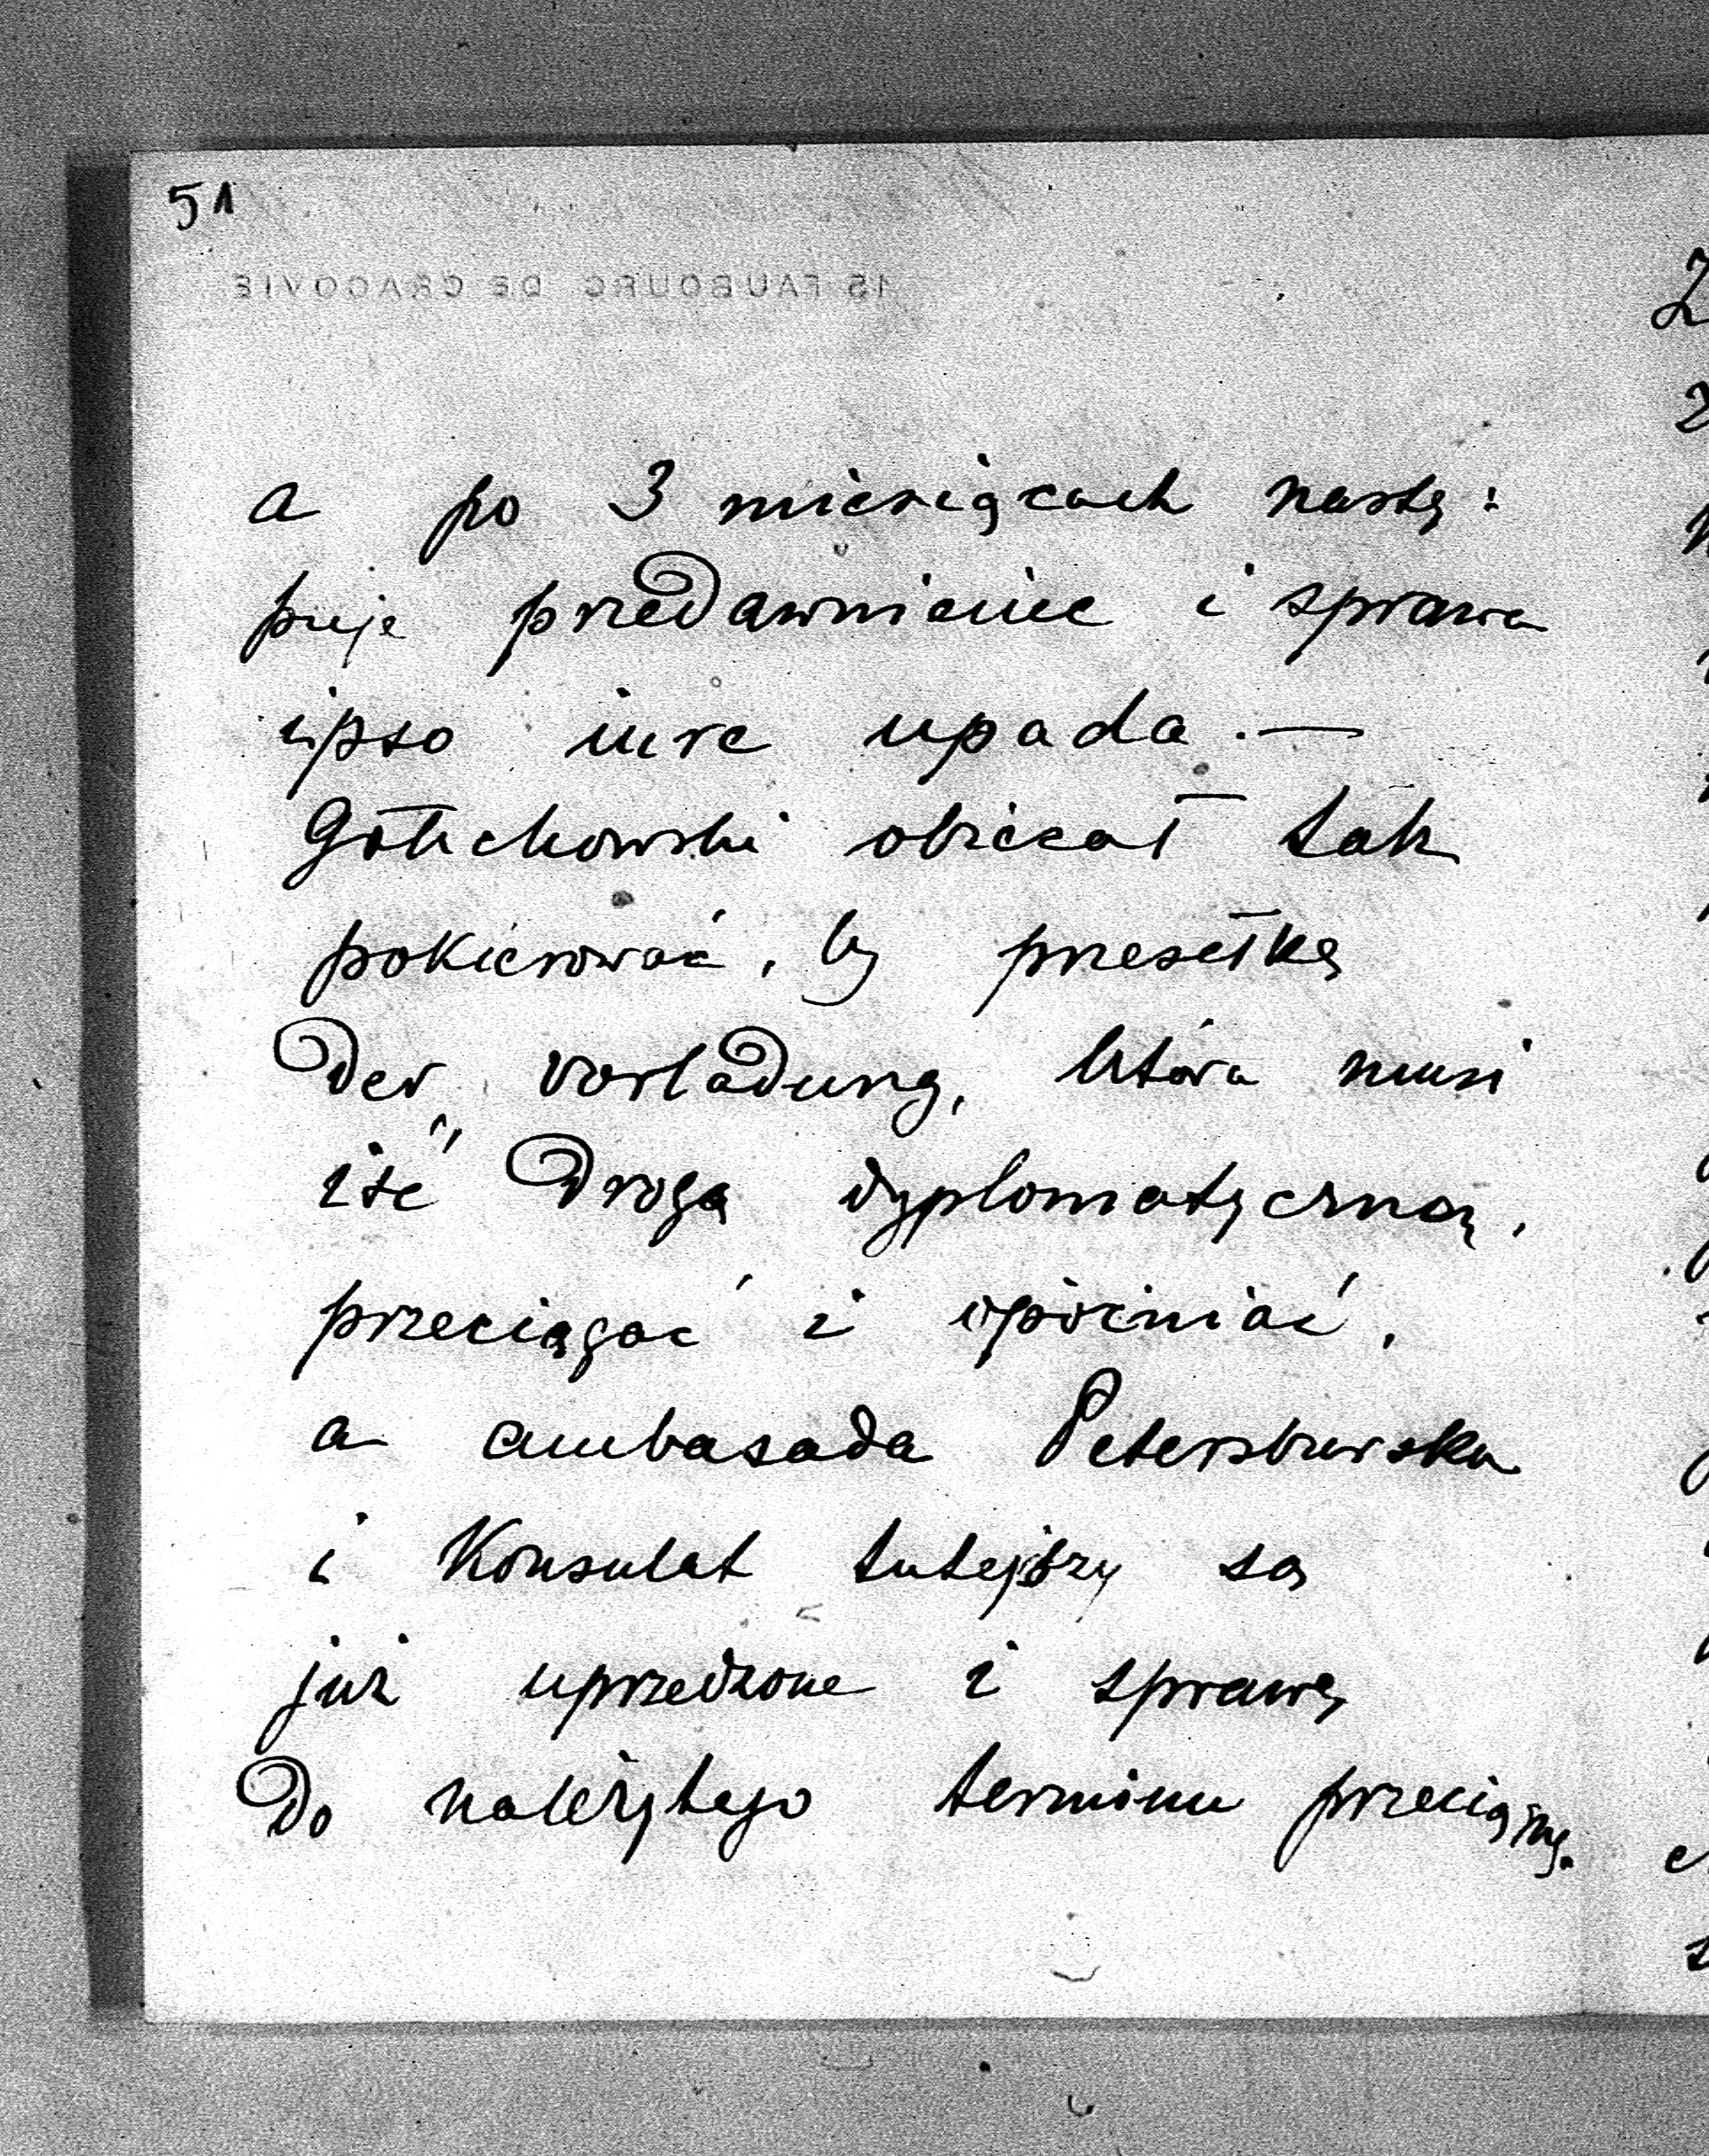 51
15 FAUBOURG DE CRACOVIE
a po 3 miesiącach nastę:
puje przedawnienie i sprawa
ipso iure upada. —
Gołuchowski obiecał tak
pokierować, by przesełkę
der Vorladung, która musi
iść drogą dyplomatyczną,
przeciągać i opóźniać,
a ambasada Petersburska
i Konsulat tutejszy są
już uprzedzone i sprawę
do należytego terminu przeciągną.